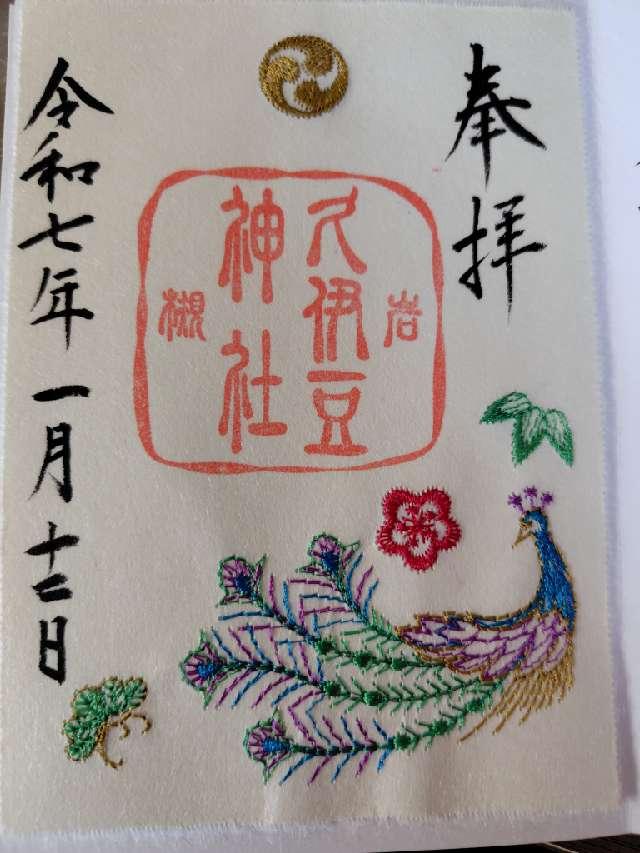 奉拝
岩
久伊豆
神社
槻
令和七年一月十二日